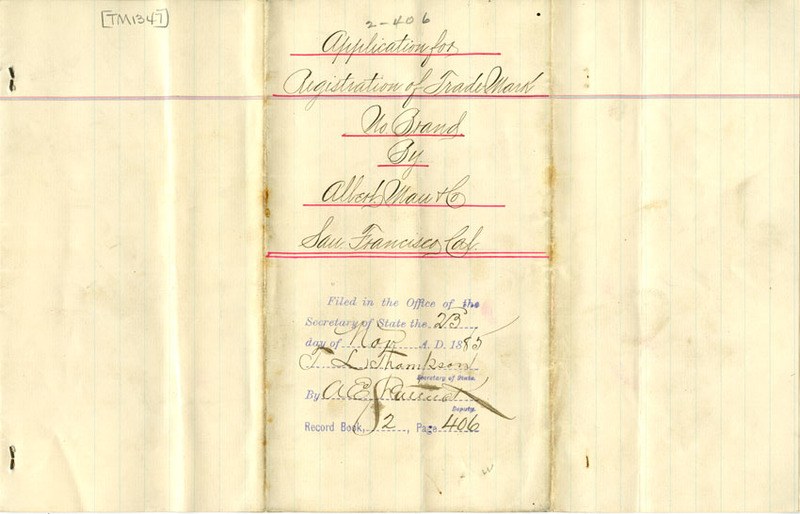 [TM1347]
2-406
Application for
Registration of Trade Mark
No Brand
By
Albert Mau & Co
San Francisco, Cal.
Filed in the Office of the
Secretary of State the 25
day of Nov A. D. 1885
T. L. Thompson
Secretary of State.
By A E
Deputy.
Record Book, 2, Page 406